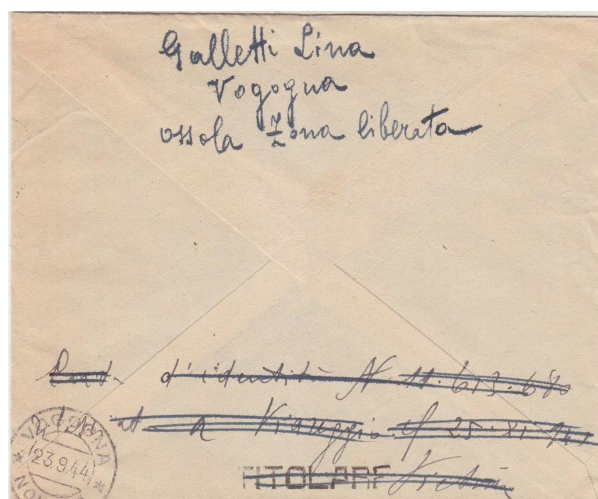 Galletti Lina
Vogogna
Ossola Zona liberata
d'identità N 11.613.680
a Viareggio
TITOLARE
VOGOGNA
23.9.44